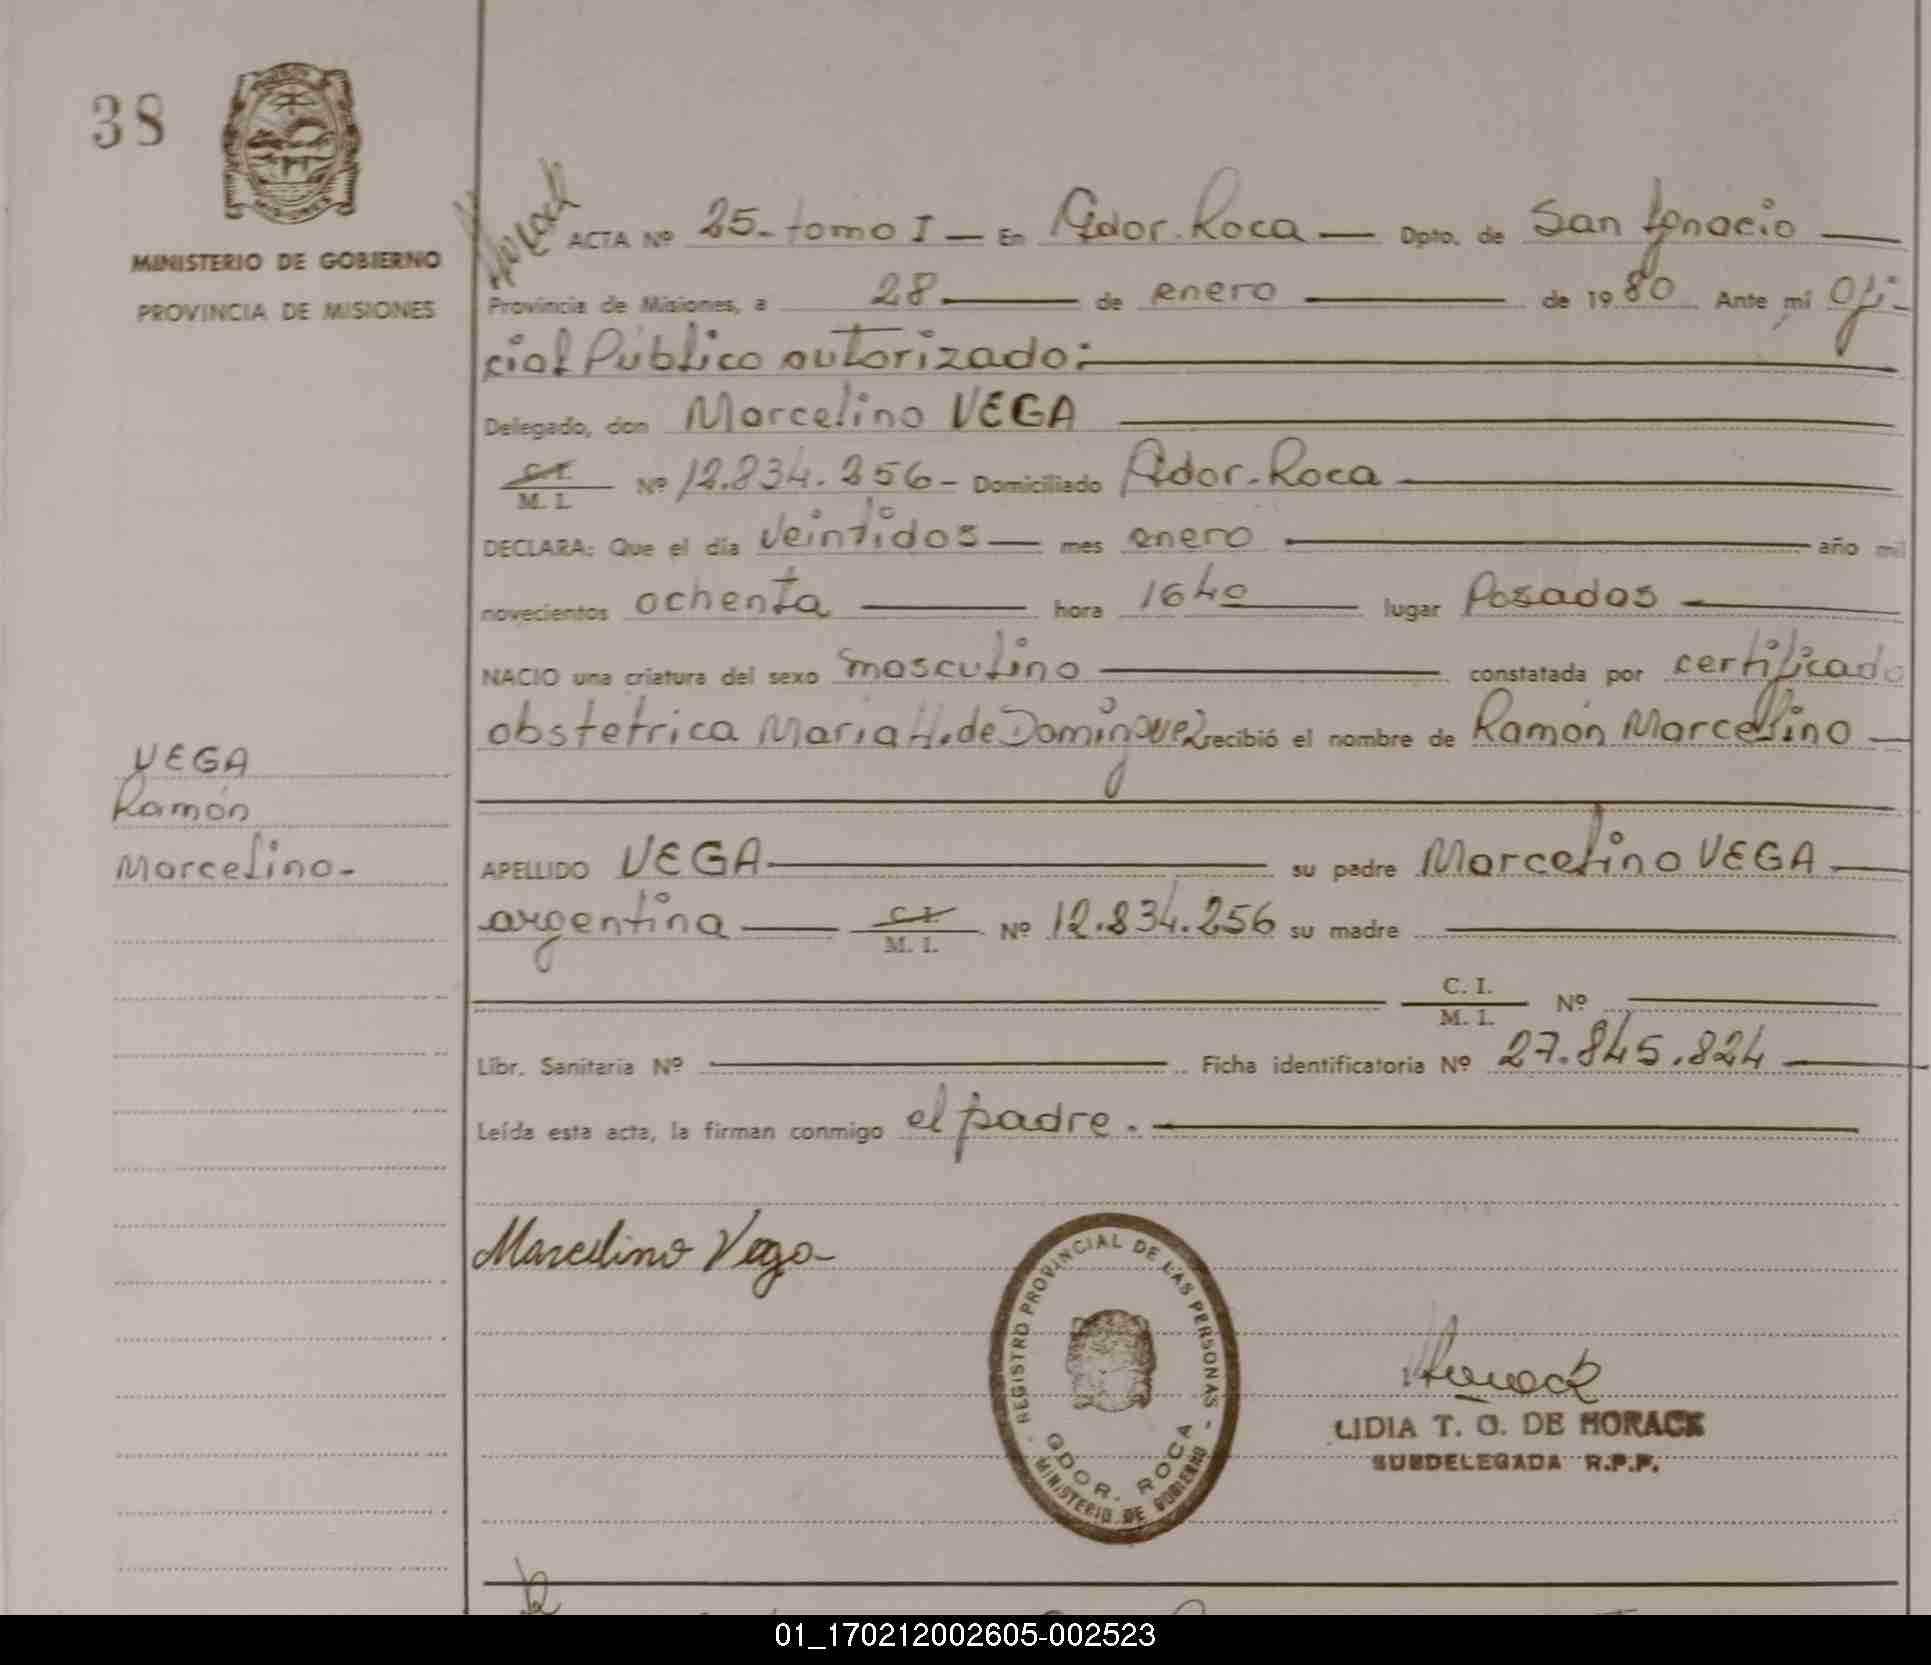 38
MINISTERIO DE GOBIERNO
PROVINCIA DE MISIONES
Horack
ACTA Nº 25-tomo I — En Gdor. Roca — Dpto. de San Ignacio —
Provincia de Misiones, a 28 — de enero — de 1980 Ante mí Ofi-
cial Público autorizado:
Delegado, don Marcelino VEGA
C. I.
M. I. Nº 12.834.256 - Domiciliado Gdor. Roca
DECLARA: Que el día veintidos — mes enero — año mil
novecientos ochenta — hora 1640 — lugar Posadas —
NACIO una criatura del sexo masculino — constatada por certificado
obstetrica Maria H. de Domínguez recibió el nombre de Ramón Marcelino —
VEGA
Ramón
Marcelino-
APELLIDO VEGA — su padre Marcelino VEGA —
argentina — C. I.
M. I. Nº 12.834.256 su madre —
C. I.
M. I. Nº —
Libr. Sanitaria Nº — Ficha identificatoria Nº 27.845.824 —
Leída esta acta, la firman conmigo el padre. —
Marcelino Vega
REGISTRO PROVINCIAL DE LAS PERSONAS
GDOR. ROCA
MINISTERIO DE GOBIERNO
Horack
LIDIA T. O. DE HORACK
SUBDELEGADA R.P.P.
01_170212002605-002523